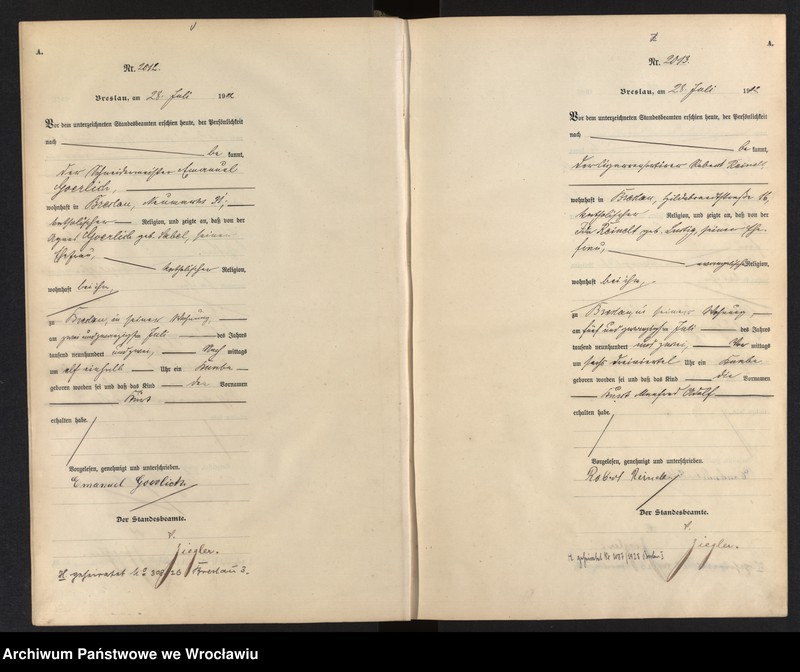 A.
Nr. 2012.
Breslau, am 28. Juli 1902
Vor dem unterzeichneten Standesbeamten erschien heute, der Persönlichkeit
nach
be kannt,
der Schneidermeister Emanuel
Goerlich,
wohnhaft in Breslau, Neumarkt 31,
katholischer Religion, und zeigte an, daß von der
Agnes Goerlich geb. seiner
Ehefrau,
katholischer Religion,
wohnhaft bei ihm,
zu Breslau, in seiner Wohnung,
am zwei und zwanzigsten Juli des Jahres
tausend neunhundert und zwei, Nach mittags
um elf einhalb Uhr ein Knabe
geboren worden sei und daß das Kind den Vornamen
Kurt
erhalten habe.
Vorgelesen, genehmigt und unterschrieben.
Emanuel Goerlich.
Der Standesbeamte.
V.
Ziegler.
H. geheiratet Breslau 3.
H
A.
Nr. 2013.
Breslau, am 28. Juli 1902
Vor dem unterzeichneten Standesbeamten erschien heute, der Persönlichkeit
nach
be kannt,
der Robert Reinelt
wohnhaft in Breslau, Hildebrandtstraße 16,
katholischer Religion, und zeigte an, daß von der
Reinelt geb. seiner Ehe-
frau,
evangelischer Religion,
wohnhaft bei ihm,
zu Breslau, in seiner Wohnung,
am fünf und zwanzigsten Juli des Jahres
tausend neunhundert und zwei, Vor mittags
um sechs dreiviertel Uhr ein Knabe
geboren worden sei und daß das Kind die Vornamen
Kurt Manfred Adolf
erhalten habe.
Vorgelesen, genehmigt und unterschrieben.
Robert Reinelt
Der Standesbeamte.
V.
Ziegler.
H. geheiratet Nr.
Archiwum Państwowe we Wrocławiu